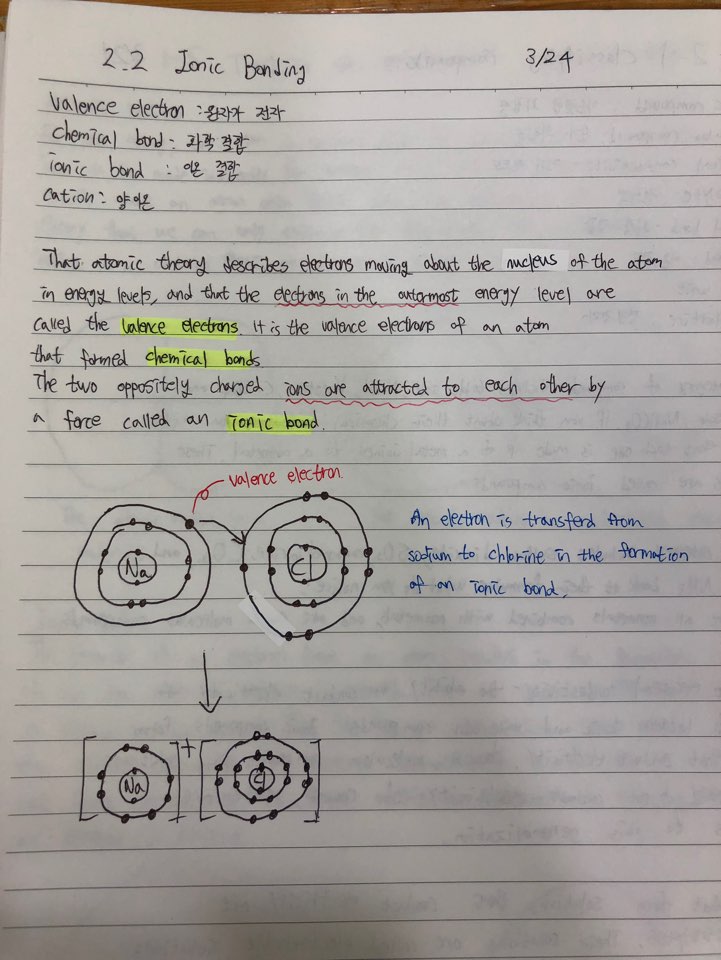 2.2 Ionic Bonding 3/24
Valence electron : 원자가 전자
chemical bond : 화학 결합
ionic bond : 이온 결합
cation : 양이온
That atomic theory describes electrons moving about the nucleus of the atom
in energy levels, and that the electrons in the outermost energy level are
called the valence electrons. It is the valence electrons of an atom
that formed chemical bonds.
The two oppositely charged ions are attracted to each other by
a force called an ionic bond.
valence electron
Na Cl
An electron is transferd from
sodium to chlorine in the formation
of an ionic bond.
[Na]+ [Cl]